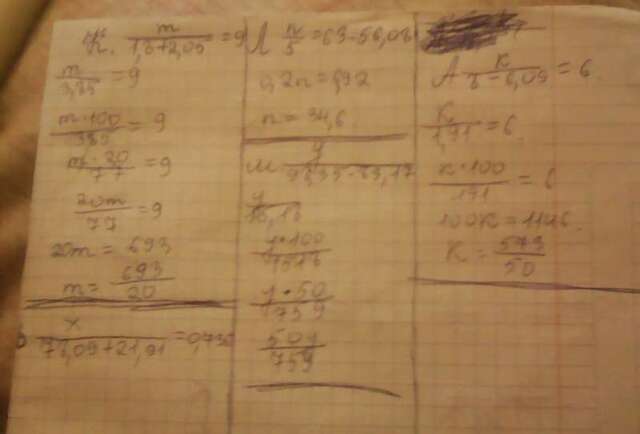 К. m/1,8+2,05 = 9
m/3,85 = 9
m·100/385 = 9
m·20/77 = 9
20m/77 = 9
20m = 693
m = 693/20
x/78,09+21,91 = 0,736
Л n/5 = 63-56,08
0,2n = 6,92
n = 34,6
м y/
y/15,18
y·100/1518
y·50/759
50y/759
А к/8-6,09 = 6.
К/1,91 = 6.
к·100/191 = 6
100к = 1146.
К = 573/50